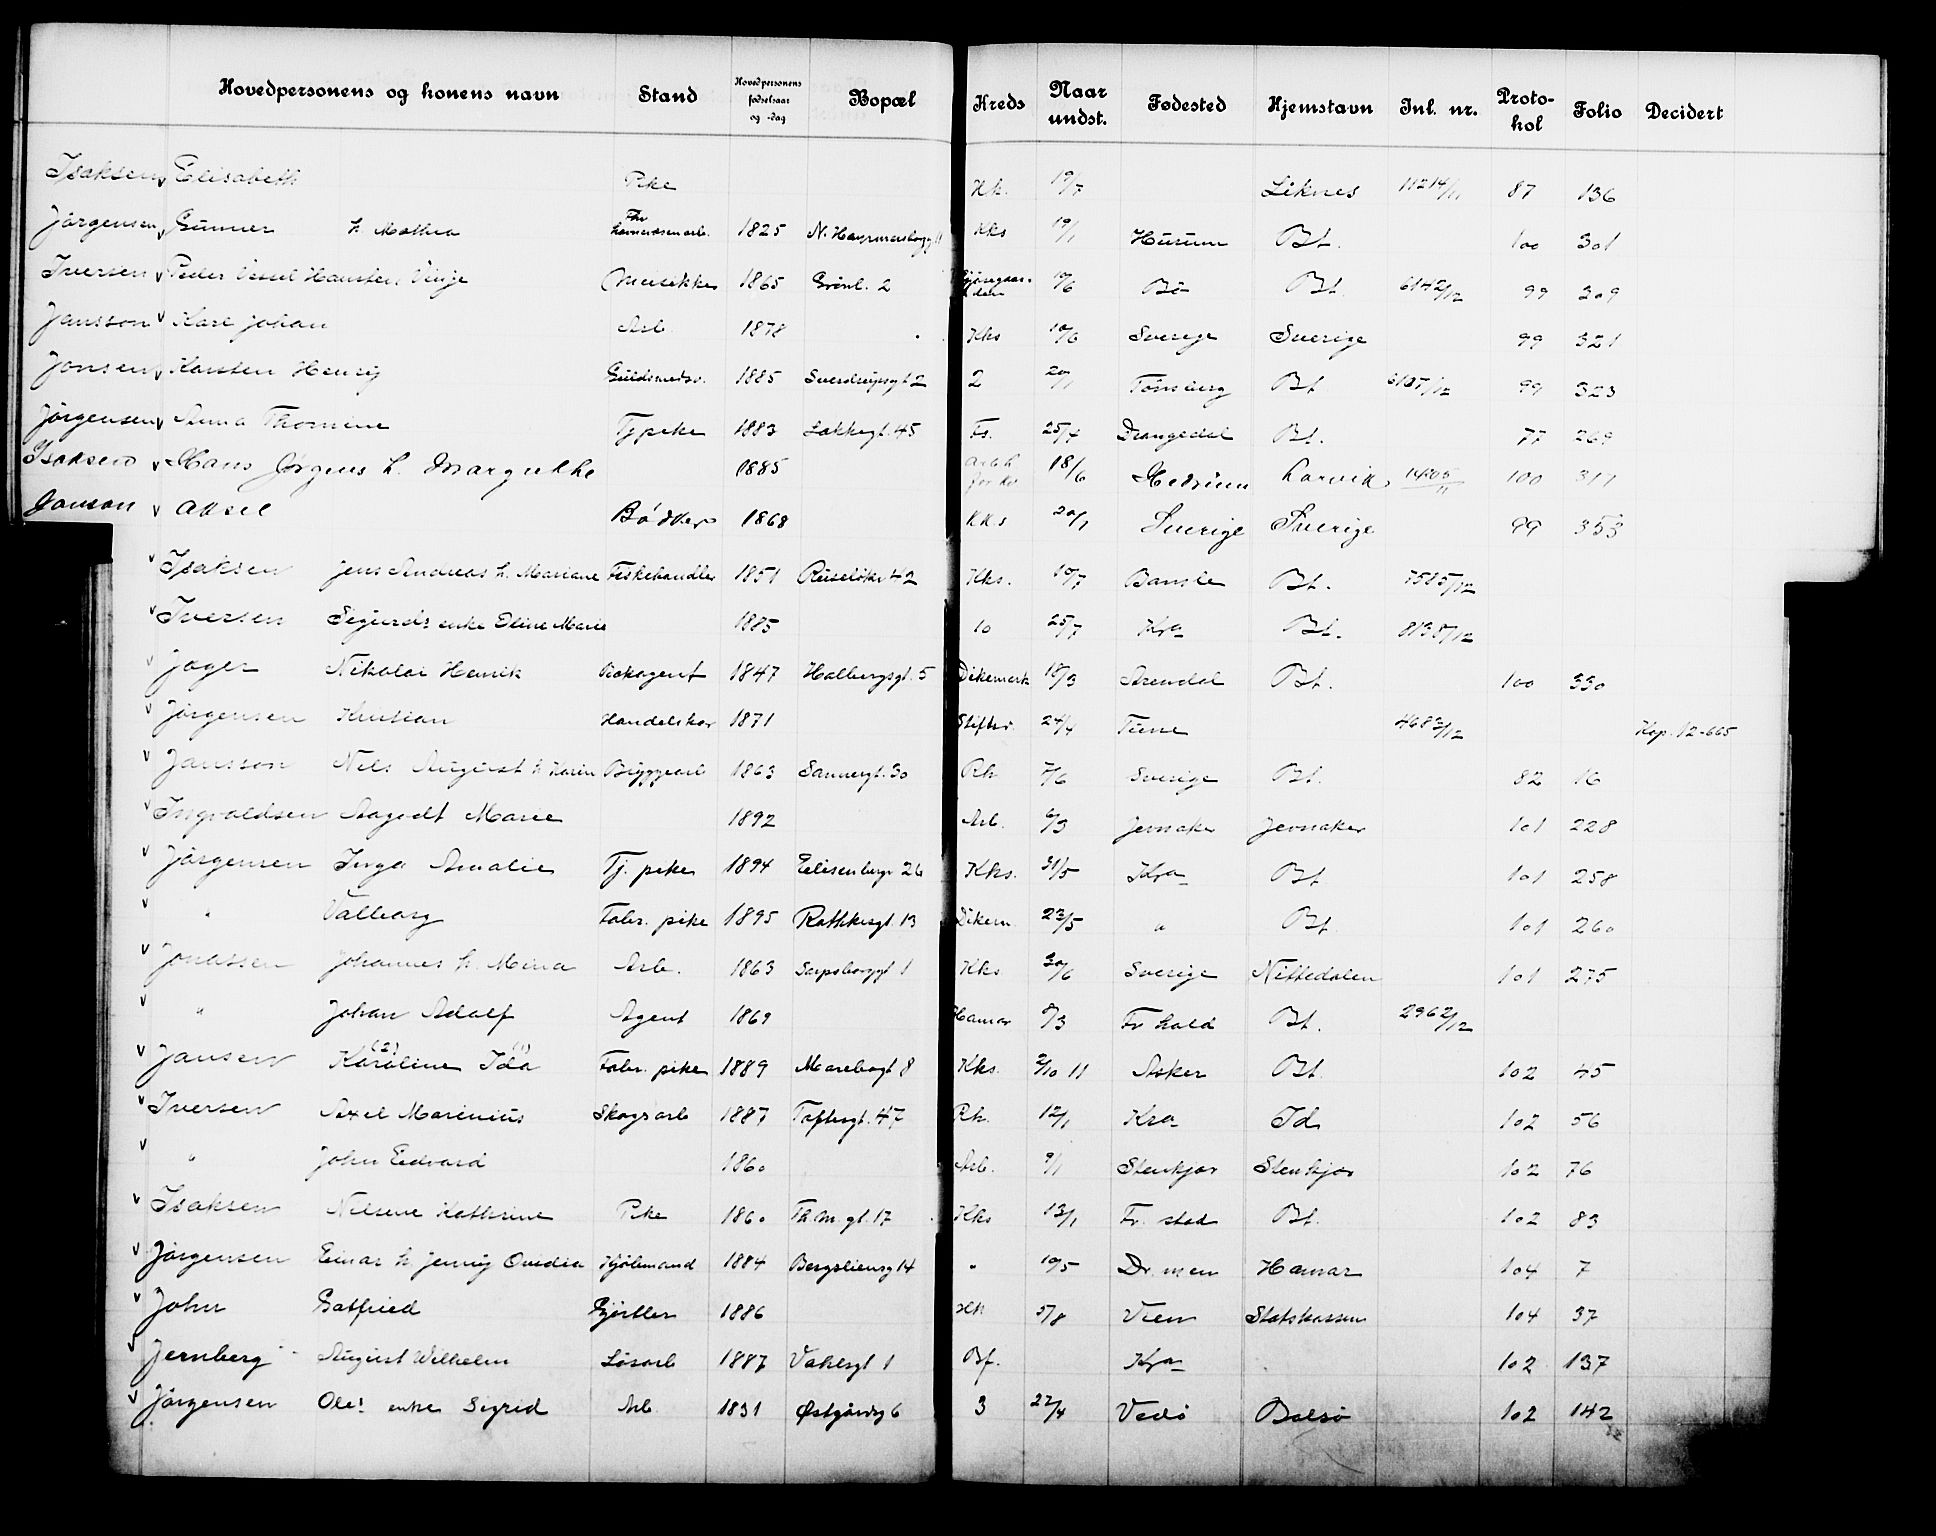 Hovedpersonens og konens navn Stand Hovedpersonens fødselsaar og -dag Bopæl Kreds Naar undst. Fødested Hjemstavn Inl. nr. Proto-kol Folio Decidert
Isaksen Elisabeth Pike Kk. 19/7 Liknes 11214/11 87 136
Jørgensen Gunner h. Mathea 1825 Kks 19/1 Hurum Bt. 100 301
Iversen Peder Vinje Musikker 1865 Grönl. 2 Bö Bt. 6142/12 99 309
Jansson Karl Johan Arb. 1878 Kks 10/6 Sverige Sverige 99 321
Jonsen Karsten Henry Guldsmedsv. 1885 Sverdrupsgt 2 2 20/1 Tönsberg Bt 99 323
Jørgensen Anna Thomine Tj pike 1883 Lakkegt. 45 Fs. 25/4 Drangedal Bt. 77 269
Isaksen Hans Jørgens h. Margrethe 1885 18/6 Hedrum Larvik 100 311
Janson Aksel Bödker 1868 KKs 20/1 Sverige Sverige 99 353
Isaksen Jens Andreas h. Mariane Fiskehandler 1851 Ruselökv 42 Kks. 10/7 Bamle Bt. 7585/12
Iversen Sigurds enke Eline Marie 1885 10 25/7 Kra Bt. 8138/12
Jager Nikolai Henrik Bokagent 1847 Holbergsgt. 5 Dikemark 18/3 Arendal Bt. 100 330
Jørgensen Kristian Handelskar 1871 24/4 Kop. 12-665
Jansson Nils August h Karin Bryggearb 1863 Sannergt. 30 Rh 7/6 Sverige Bt. 82 16
Ingvaldsen Aagodt Marie 1892 Arb. 6/3 Jevnaker Jevnaker 101 228
Jørgensen Inga Amalie Tj. pike 1894 Eilisenbergv 26 Kks. 31/5 Kra Bt 101 258
" Valborg Fabr. pike 1895 Rathkesgt. 13 Dikem 23/5 " Bt. 101 260
Jonassen Johannes h. Mina Arb. 1863 Sarpsborggt 1 Kks 30/6 Sverige Nittedalen 101 275
" Johan Adolf Agent 1869 Hamar 8/3 Fr hald Bt. 2962/12
Jansen Karoline (2) Ida (1) Fabr. pike 1889 Marebogt 8 Kks. 2/10 11 Asker Bt. 102 45
Iversen Axel Marinius Skogsarb 1887 Toftesgt. 47 Rh. 12/1 Kra Id 102 56
" John Edvard 1860 Arb. 9/1 Stenkjær Stenkjær 102 76
Isaksen Nilsine Kathrine Pike 1860 Th. M. gt. 17 Kks 13/1 Fr. stad Bt. 102 83
Jørgensen Einar h Jenny Ovidia Kjölmand 1884 Bergsliensg 14 " 10/5 Dr.men Hamar 104 7
John Gotfried Gjörtler 1886 Kk 5/8 Vien Statskassen 104 37
Jernberg August Wilhelm Lösarb 1887 Vahlsgt 1 Bf. Kra 102 137
Jørgensen Oles enke Sigrid Arb. 1831 Østgårdsg 6 3 22/4 Vedö Bolsö 102 142